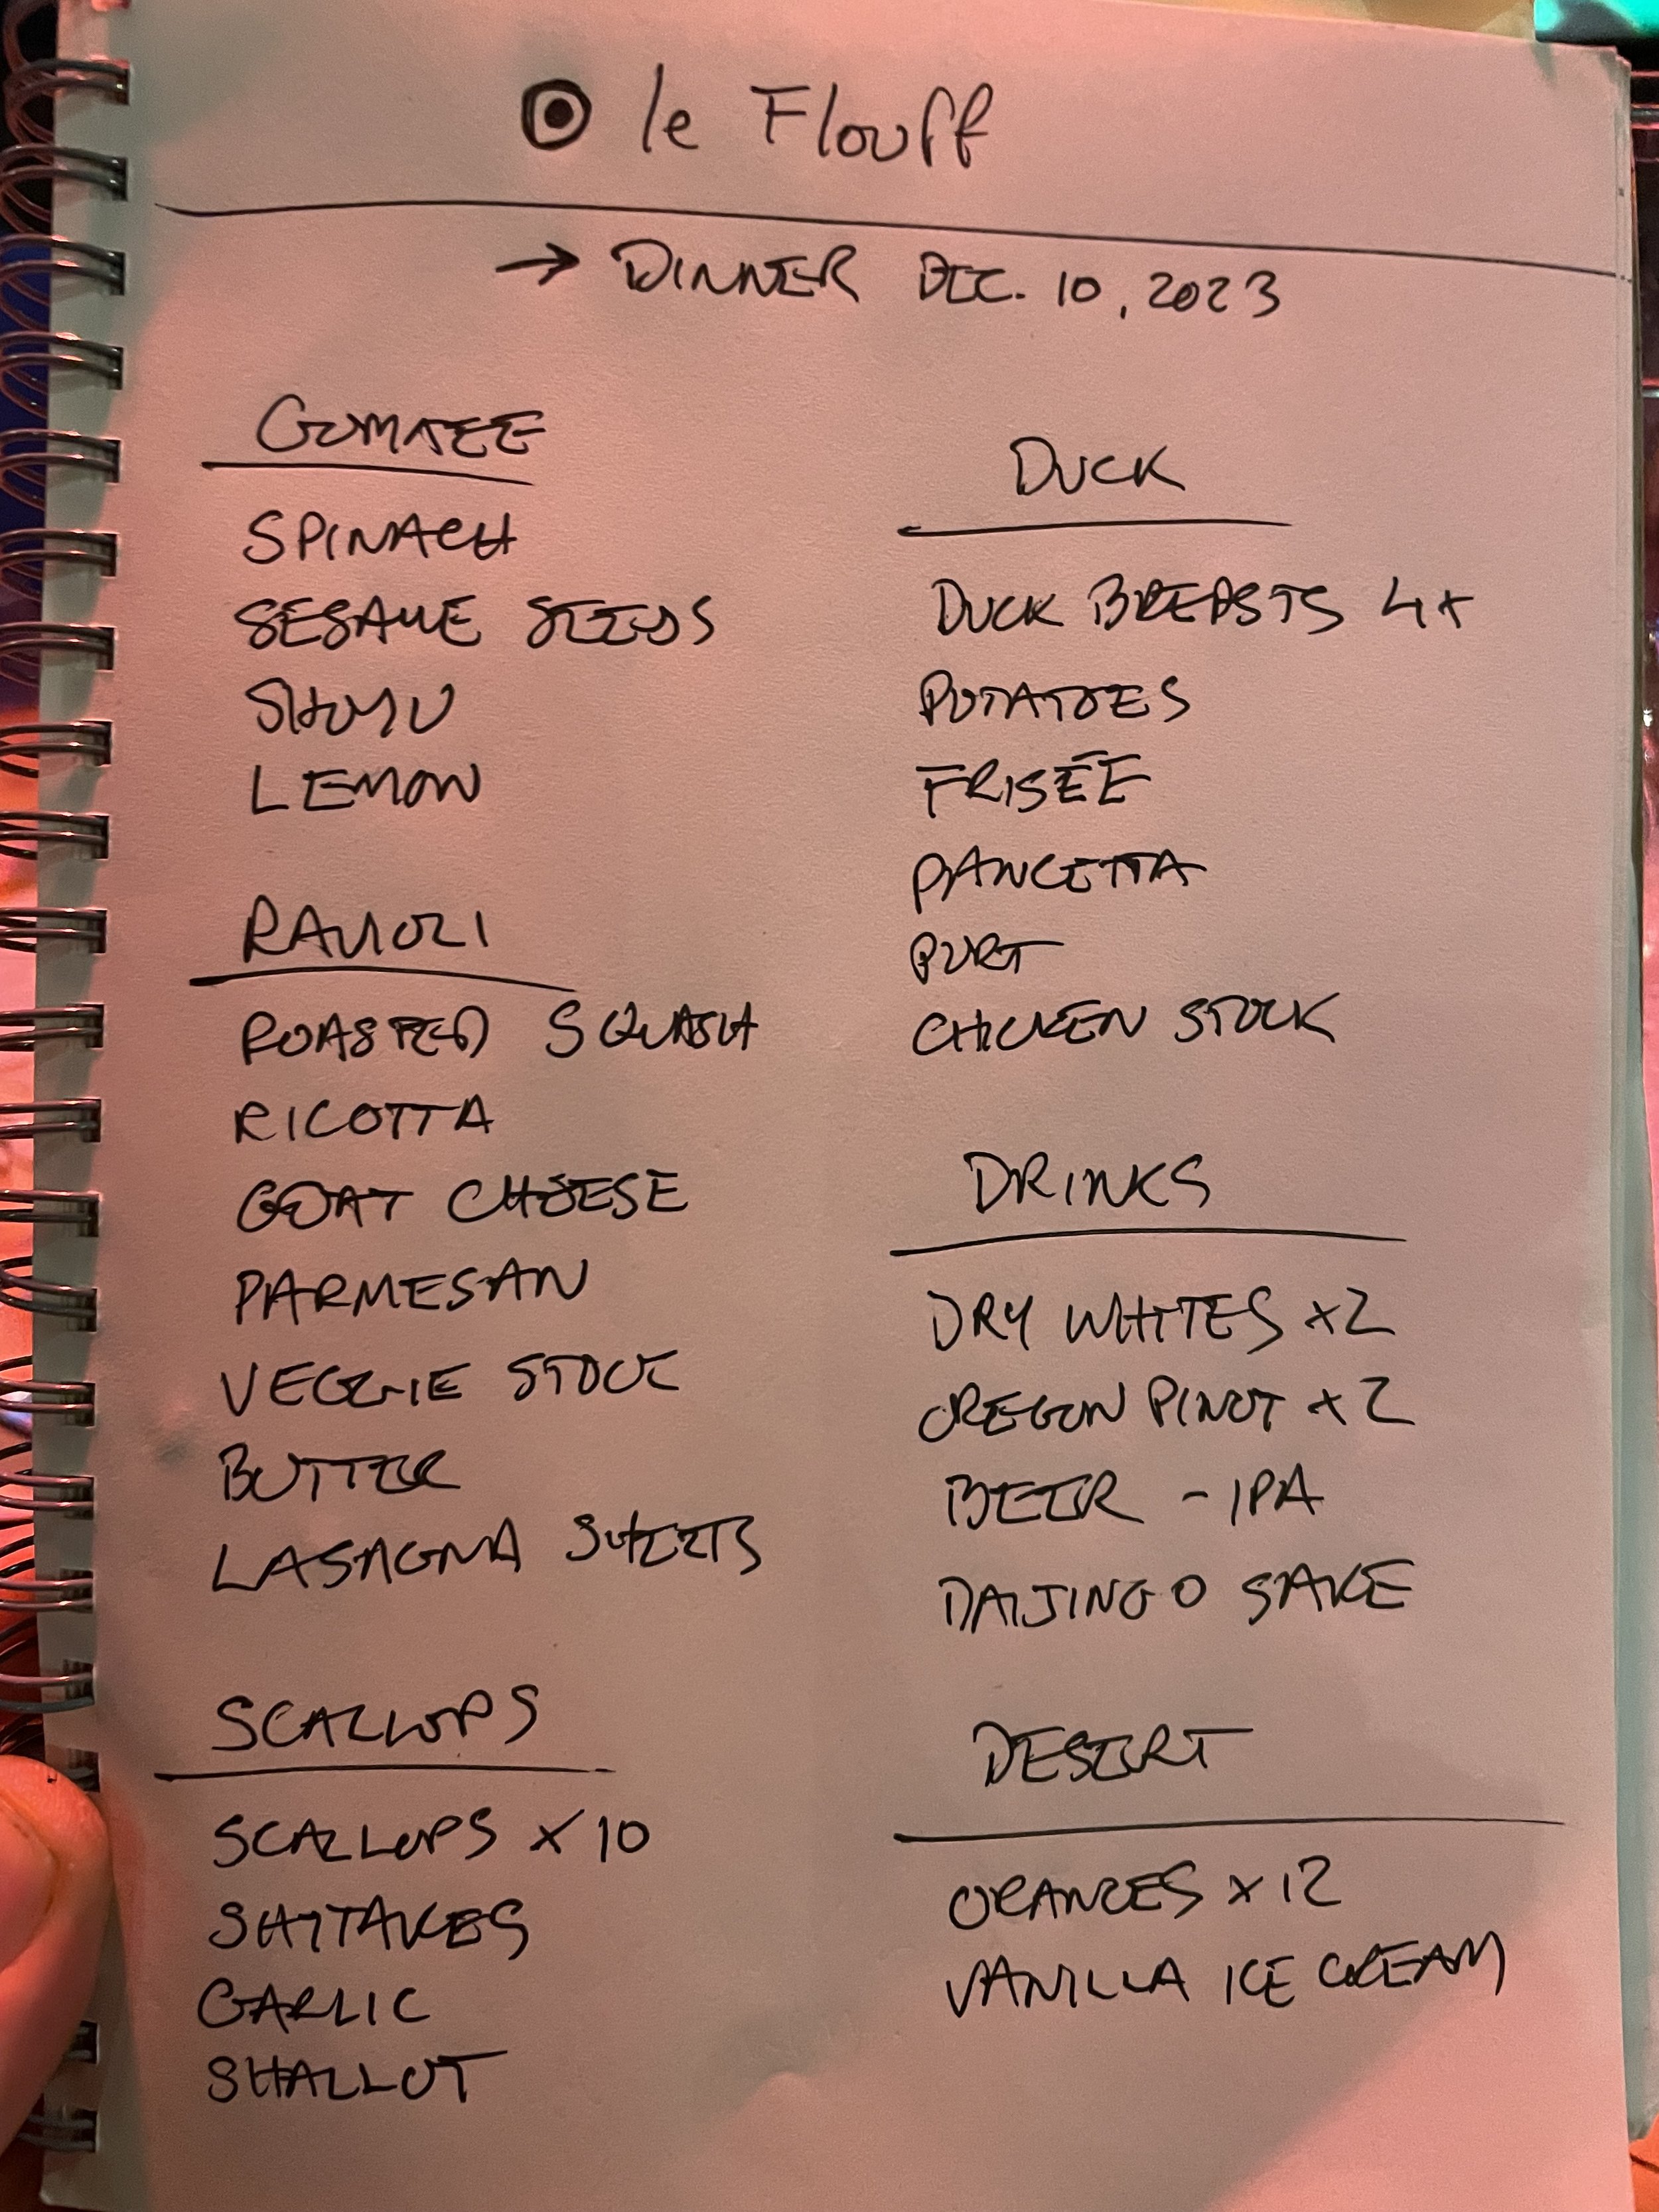 le Flouff
→ DINNER DEC. 10, 2023
GOMAEE
SPINACH
SESAME SEEDS
SHOYU
LEMON
RAVIOLI
ROASTED SQUASH
RICOTTA
GOAT CHEESE
PARMESAN
VEGGIE STOCK
BUTTER
LASAGNA SHEETS
SCALLOPS
SCALLOPS x 10
SHITAKES
GARLIC
SHALLOT
DUCK
DUCK BREASTS 4x
POTATOES
FRISÉE
PANCETTA
PORT
CHICKEN STOCK
DRINKS
DRY WHITES x2
OREGON PINOT x2
BEER - IPA
DAIJINGO SAKE
DESERT
ORANGES x12
VANILLA ICE CREAM